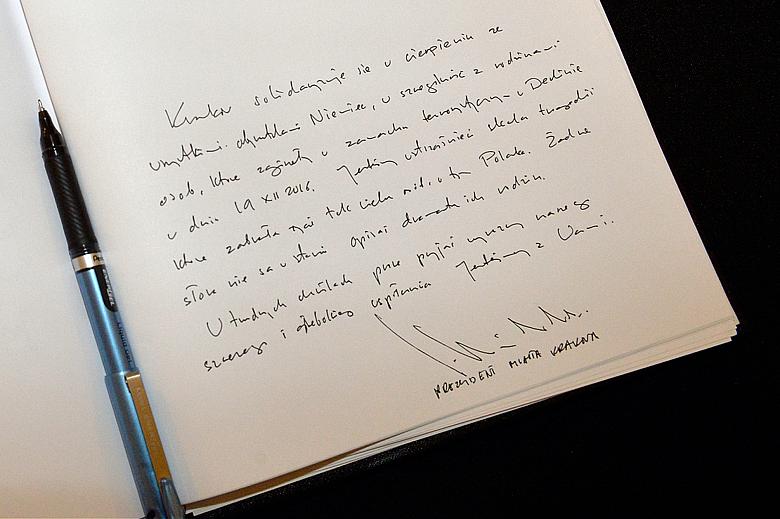 Kraków solidaryzuje się w cierpieniu ze
wszystkimi obywatelami Niemiec, w szczególności z rodzinami
osób, które zginęły w zamachu terrorystycznym w Berlinie
w dniu 19 XII 2016. Jesteśmy wstrząśnięci skalą tragedii
która zabrała życie tak wielu osób, w tym Polaka. Żadne
słowa nie są w stanie opisać dramatu ich rodzin.
W trudnych chwilach proszę przyjąć wyrazy naszego
szczerego i głębokiego współczucia Jesteśmy z Wami.
PREZYDENT MIASTA KRAKOWA